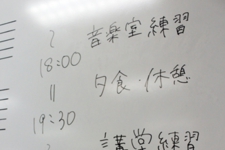 〜 音楽堂練習
18:00
|| 夕食・休憩
19:30
〜 講堂練習